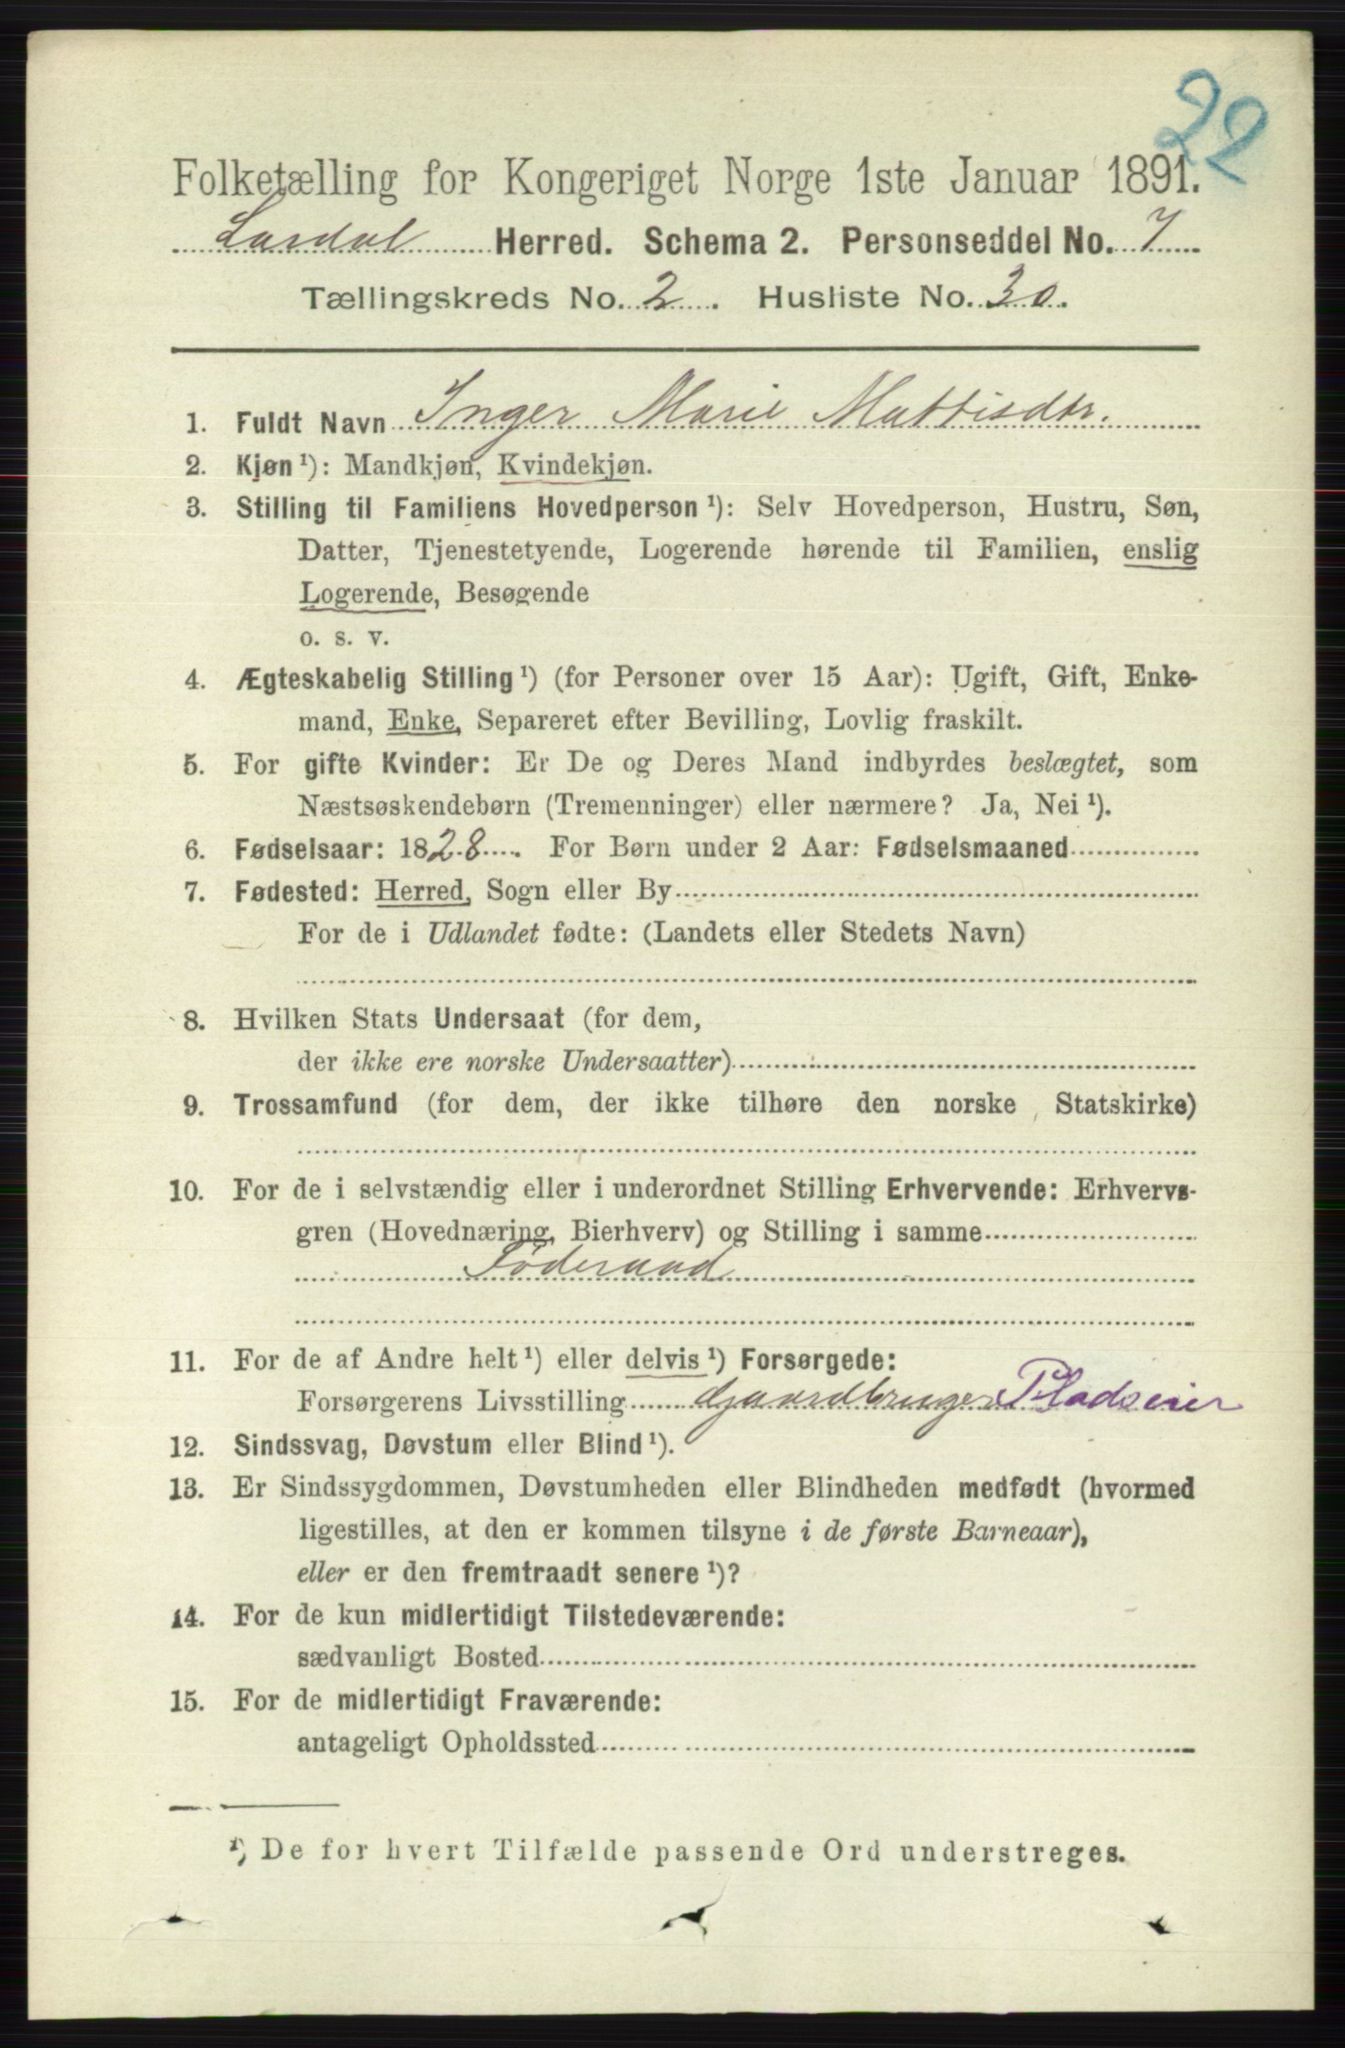 22
Folketælling for Kongeriget Norge 1ste Januar 1891.
Lardal Herred. Schema 2. Personseddel No. 7
Tællingskreds No. 2. Husliste No. 30.
1. Fuldt Navn Inger Marie Mattisdtr.
2. Kjøn ¹): Mandkjøn, Kvindekjøn.
3. Stilling til Familiens Hovedperson ¹): Selv Hovedperson, Hustru, Søn,
Datter, Tjenestetyende, Logerende hørende til Familien, enslig
Logerende, Besøgende
o. s. v.
4. Ægteskabelig Stilling ¹) (for Personer over 15 Aar): Ugift, Gift, Enke-
mand, Enke, Separeret efter Bevilling, Lovlig fraskilt.
5. For gifte Kvinder: Er De og Deres Mand indbyrdes beslægtet, som
Næstsøskendebørn (Tremenninger) eller nærmere? Ja, Nei ¹).
6. Fødselsaar: 1828. For Børn under 2 Aar: Fødselsmaaned
7. Fødested: Herred, Sogn eller By
For de i Udlandet fødte: (Landets eller Stedets Navn)
8. Hvilken Stats Undersaat (for dem,
der ikke ere norske Undersaatter)
9. Trossamfund (for dem, der ikke tilhøre den norske Statskirke)
10. For de i selvstændig eller i underordnet Stilling Erhvervende: Erhvervs-
gren (Hovednæring, Bierhverv) og Stilling i samme
Föderaad
11. For de af Andre helt ¹) eller delvis ¹) Forsørgede:
Forsørgerens Livsstilling Gaardbruger Pladseier
12. Sindssvag, Døvstum eller Blind ¹).
13. Er Sindssygdommen, Døvstumheden eller Blindheden medfødt (hvormed
ligestilles, at den er kommen tilsyne i de første Barneaar),
eller er den fremtraadt senere ¹)?
14. For de kun midlertidigt Tilstedeværende:
sædvanligt Bosted
15. For de midlertidigt Fraværende:
antageligt Opholdssted
¹) De for hvert Tilfælde passende Ord understreges.